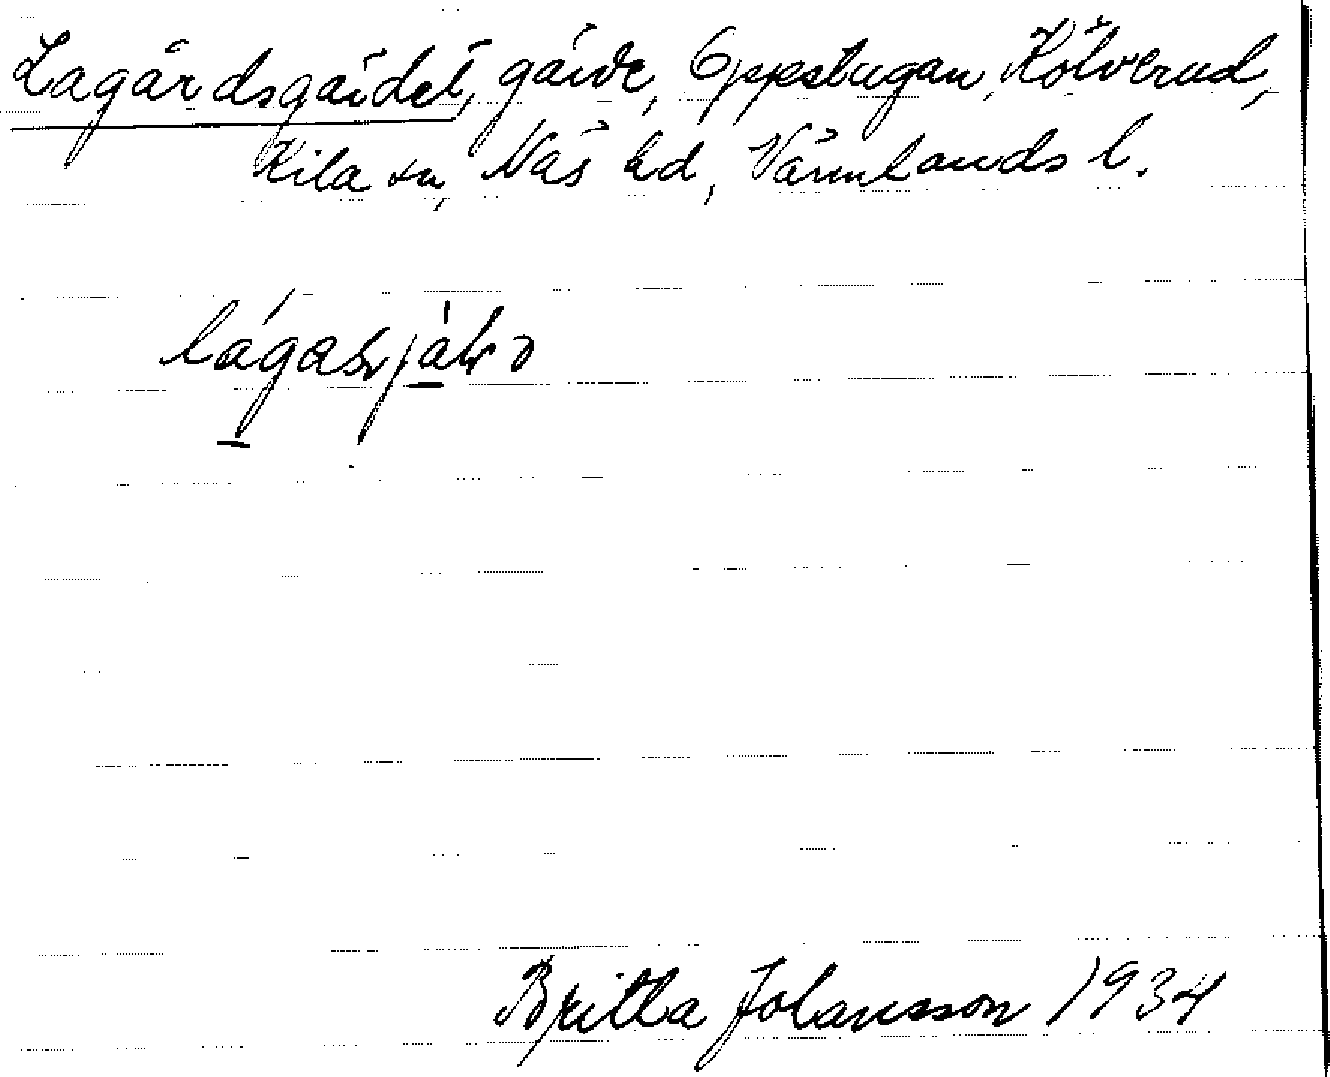 Lagårdsgärdet, gärde, Oppstugan, Kölverud,
Kila sn, Näs hd, Värmlands l.
Britta Johansson 1934